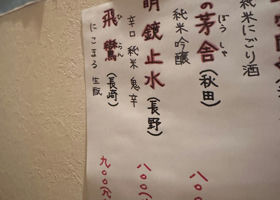 純米にごり酒
の茅舎(秋田)
ぼうしゃ
純米吟醸
明鏡止水(長野)
辛口純米 鬼辛
飛鸞(長崎)
ひらん
にこまる 生酛
九〇〇
八〇〇